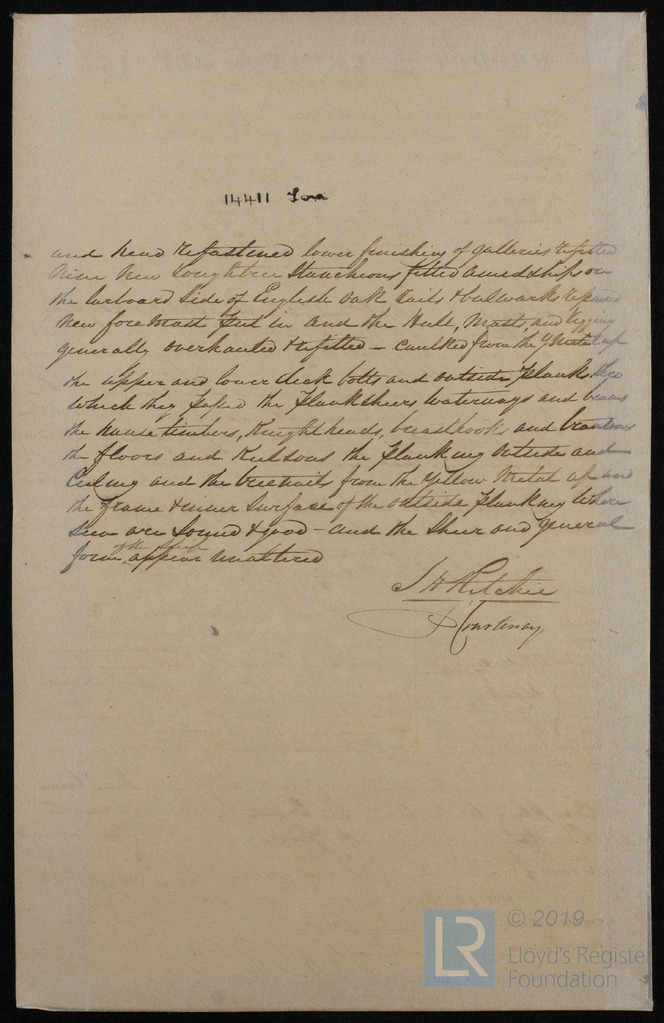 14411 Lon
and head refastened lower finishing of galleries refitted
Nine New roughtree Stancheons fitted amidships on
the Larboard Side of English Oak rails & bulwarks repaired
New fore Mast put in and the Hull, Masts, and rigging
generally overhauled & refitted – caulked from the Y Metal up
the upper and lower deck bolts and outside plank
which they passed the planksheers waterways and beams
the hause timbers, Knightheads, breasthooks and transoms
the floors and Kelsons the planking outside and
Ceiling and the treenails from the Yellow Metal up and
the frame & inner Surface of the outside planking where
seen are Sound & good – and the Sheer and general
form of the appear unaltered
J H Ritchie
Courtenay
© 2019
LR
Lloyd's Register
Foundation